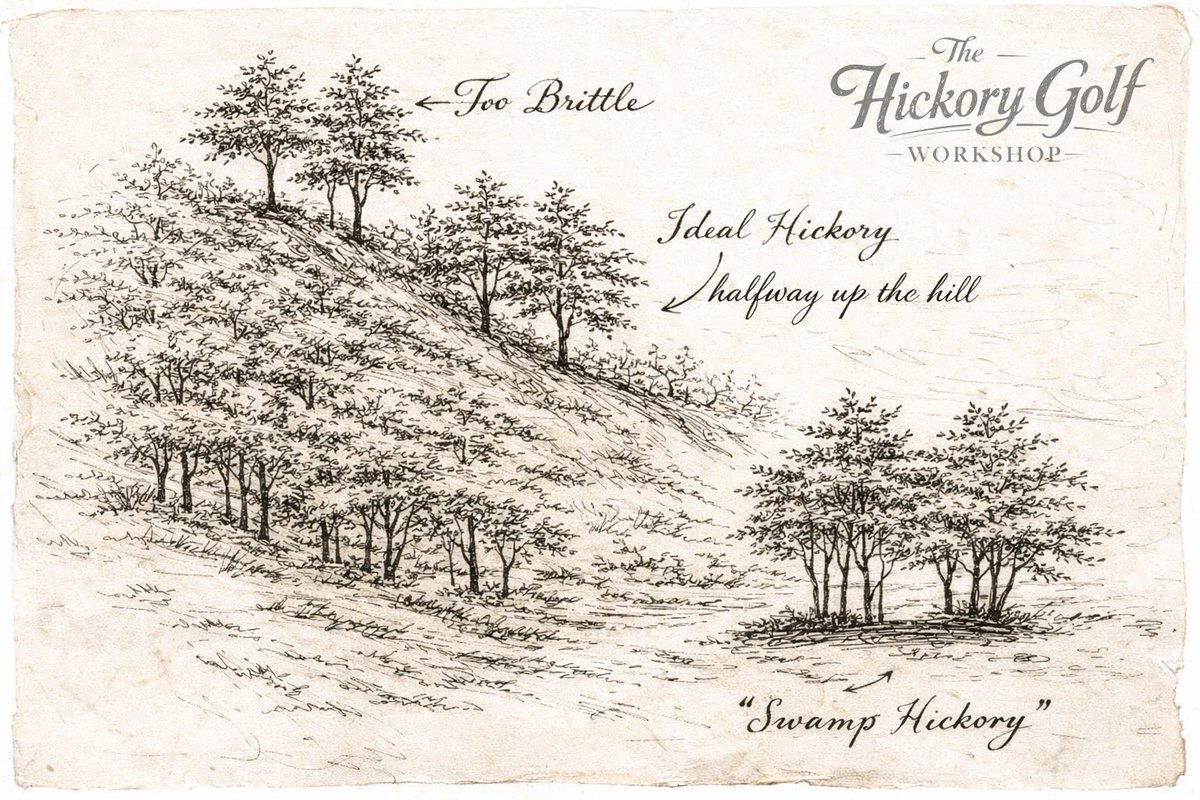 The
Hickory Golf
WORKSHOP
Too Brittle
Ideal Hickory
halfway up the hill
"Swamp Hickory"